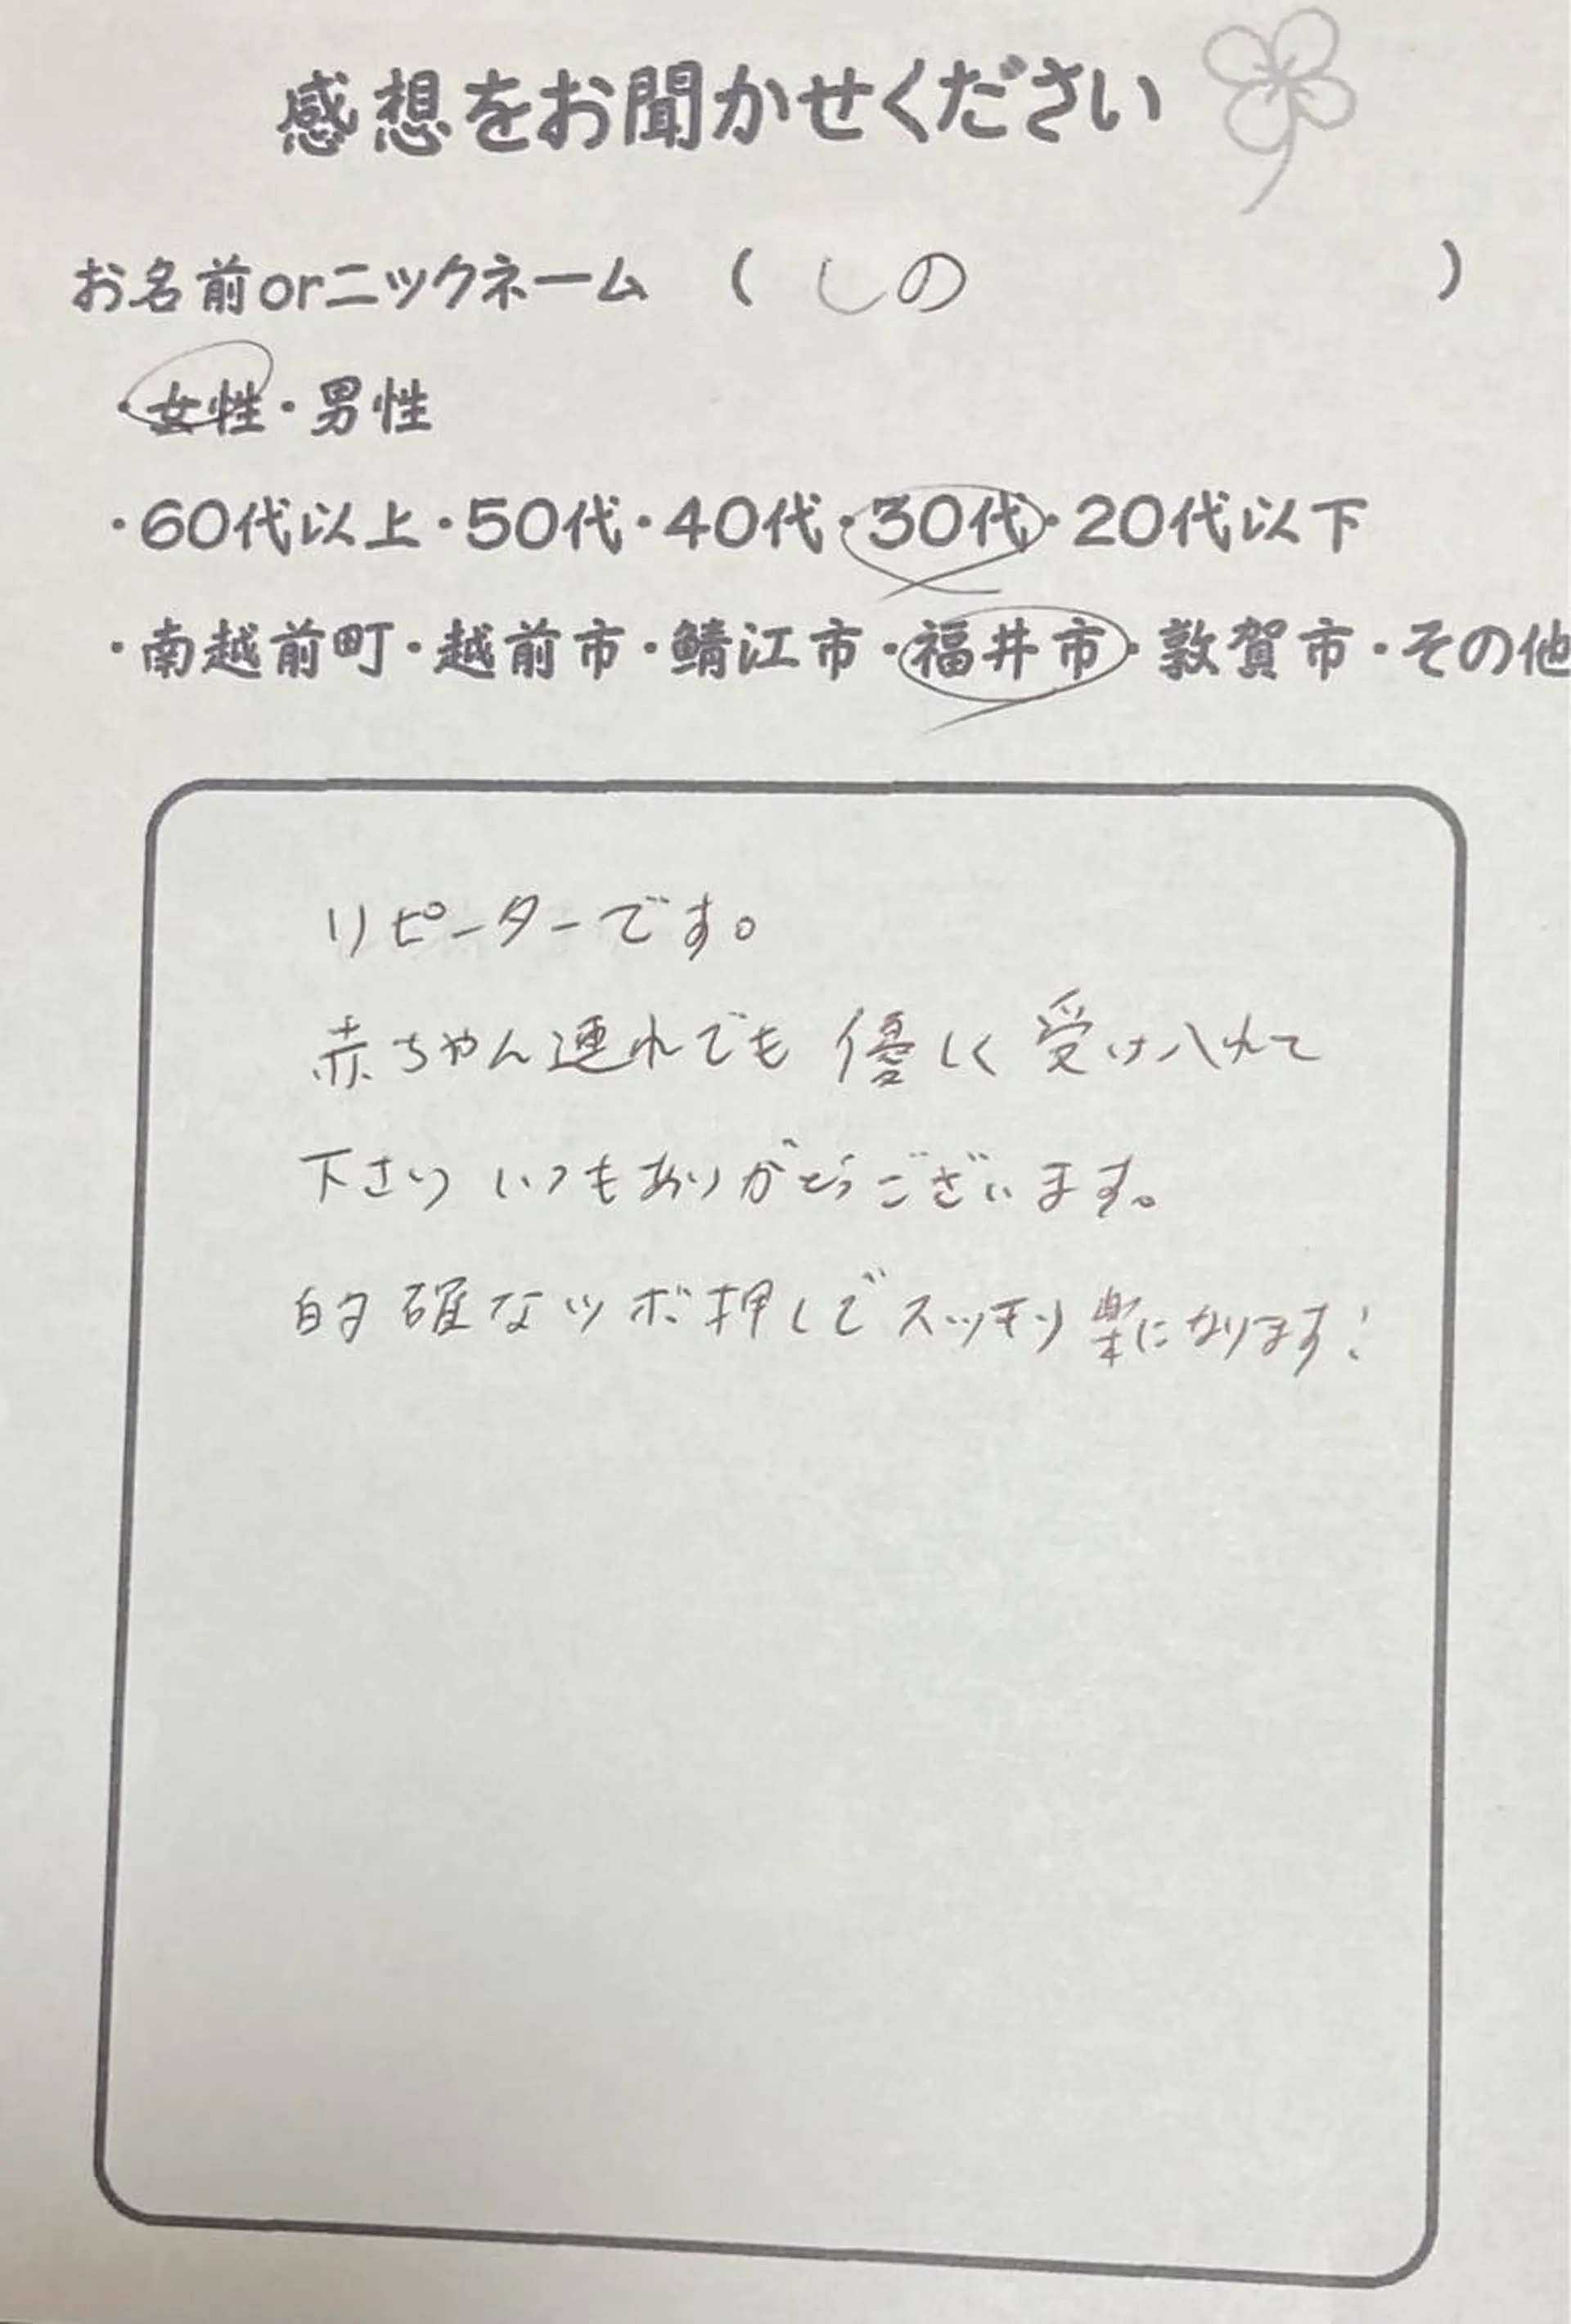 感想をお聞かせください
お名前orニックネーム ( しの )
・女性・男性
・60代以上・50代・40代・30代・20代以下
・南越前町・越前市・鯖江市・福井市・敦賀市・その他
リピーターです。
赤ちゃん連れでも 優しく 受け入れて
下さり いつもありがとうございます。
的確なツボ押しで スッキリ 楽になります!